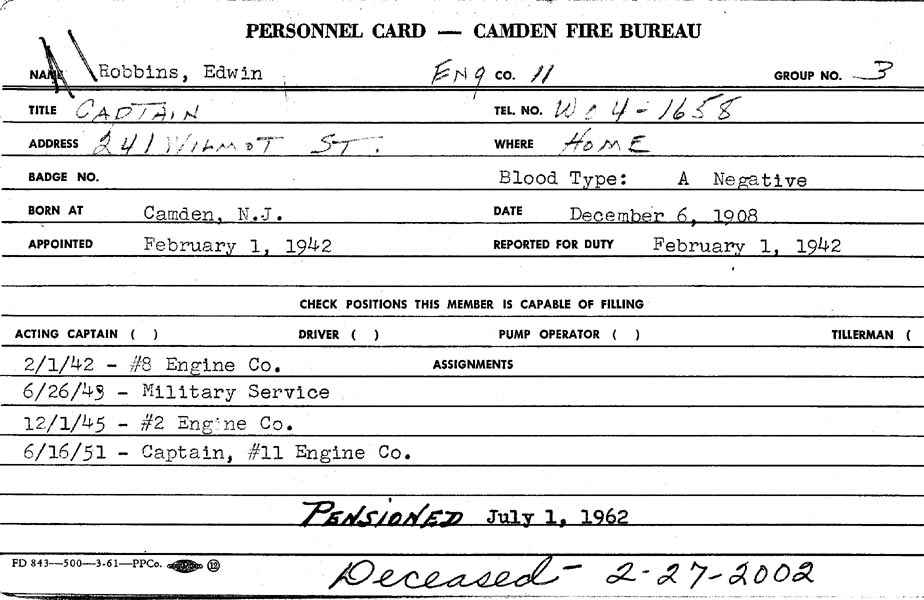 PERSONNEL CARD — CAMDEN FIRE BUREAU
NAME Robbins, Edwin ENG CO. 11 GROUP NO. 3
TITLE CAPTAIN TEL. NO. WO 4-1658
ADDRESS 241 WILMOT ST. WHERE HOME
BADGE NO. Blood Type: A Negative
BORN AT Camden, N.J. DATE December 6, 1908
APPOINTED February 1, 1942 REPORTED FOR DUTY February 1, 1942
CHECK POSITIONS THIS MEMBER IS CAPABLE OF FILLING
ACTING CAPTAIN ( ) DRIVER ( ) PUMP OPERATOR ( ) TILLERMAN (
2/1/42 - #8 Engine Co. ASSIGNMENTS
6/26/43 - Military Service
12/1/45 - #2 Engine Co.
6/16/51 - Captain, #11 Engine Co.
PENSIONED July 1, 1962
FD 843—500—3-61—PPCo. 12
Deceased - 2-27-2002